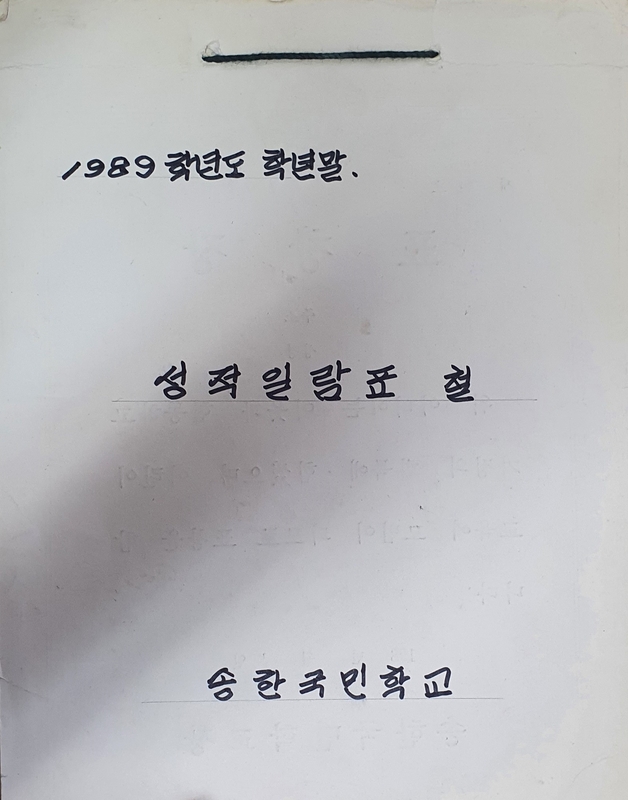 1989 학년도 학년말.
성적일람표 철
송한국민학교